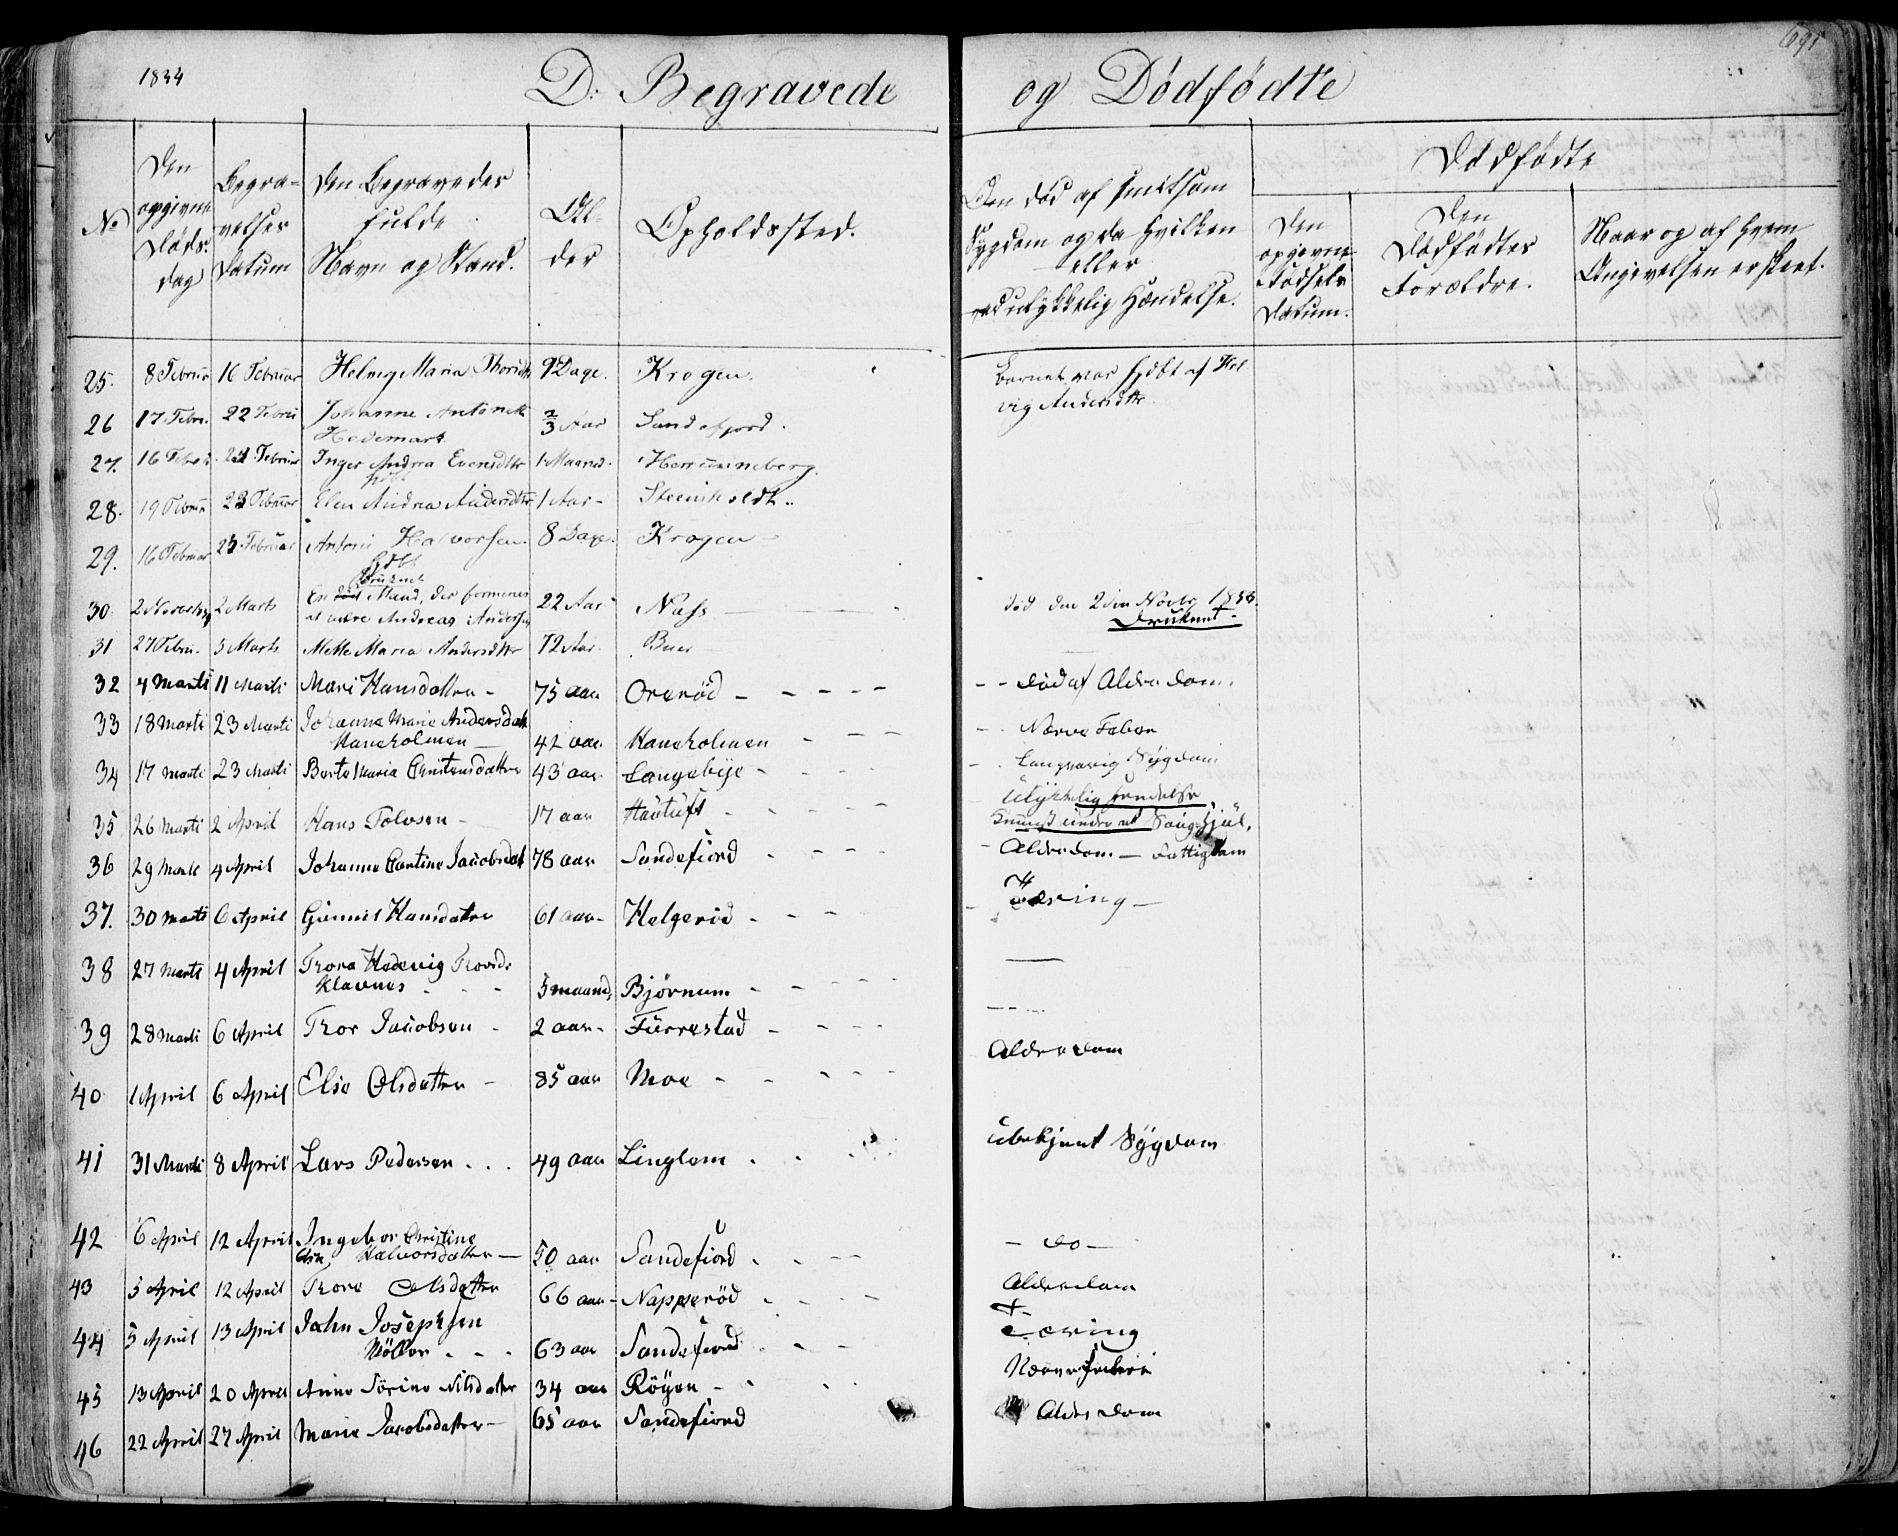 1834
D. Begravede og Dødfødte
691
No
Den opgivne Døds dag
Begravelses Datum
Den Begravedes fulde Navn og Stand.
Alder
Opholdssted.
Om død af smitsom Sygdom og da hvilken eller ved ulykkelig Hændelse.
Dødfødte
Den opgivne Fødsels Datum.
Den Dødfødtes Forældre.
Naar og af hvem Angivelsen er skeet.
25. 8 Februar 16 Februar Helvig Maria Thorsdtr 9 Dage. Krogen. Barnet var født af Hel
vig Andersdtr.
26 17 Febr. 22 Februar Johanne Antonette 2/3 Aar Sandefjord.
Hedemark
27. 16 Februar Februar Inger Andrea Evensdtr 1 Maaned.
28. 19 Februar 23 Februar Elen Andrea Andersdtr 1 Aar - Steensholdt.
29. 16 Februar 25 Februar Anton Halvorsen 8 Dage. Krogen
druknet
30. 2 Novebr 2 Marts En død Mand, der formenes 22 Aar Næss død den 2den Novbr 1833.
at være Andreas Andersen druknet.
31 27 Febru. 5 Marts Mette Maria Andersdtr 72 Aar Buer
32 4 Marti 11 Marti Mari Hansdatter - 75 aar Orerød - - - - - - død af Alderdom.
33 18 Marti 23 Marti Johanne Marie Andersdatr
Haneholmen 42 aar Haneholmen - - - Nerve Feber
34 17 Marti 23 Marti Berte Maria Christensdatter 43 aar Langebye - Langvarig Sygdom
35 26 Marti 2 April Hans Tolvsen - 17 aar Hautuft - - Ulykkelig hendelse
under et Saug hjul.
36 29 Marti 4 April Johanne Cantine Jacobsdat 78 aar Sandefiord - Alderdom - Fattiglem
37. 30 Marti 6 April Gunnil Hansdatter 61 aar - Helgerød - - - Tæring -
38 27 Marti 4 April Thora Hedevig Thorsd.
Klavnes - - - 5 maand. Bjørnum - - - -
39 28 Marti 6 April Thor Jacobsen - 2 aar - Furrestad - - - -
40 1 April 6 April Elie Olsdatter - 85 aar Moe - - - - - Alderdom
41 31 Marti 8 April Lars Pedersen . . . 49 aar Linglem . . . ubekjent Sygdom
42 6 April 12 April Ingebor Christine
Halvorsdatter - 50 aar Sandefiord . - - do -
43 5 April 12 April Thore Olsdatter 66 aar - Napperød - - - - Alderdom
44 5 April 13 April John Josephsen
Møller . - - 63 aar Sandefiord . - - Tæring
45 13 April 20 April Anne Sørine Nilsdatter 34 aar Røyen - - Nerve Feber
46 22 April 27 April Marie Jacobsdatter - 65 aar Sandefiord Alderdom